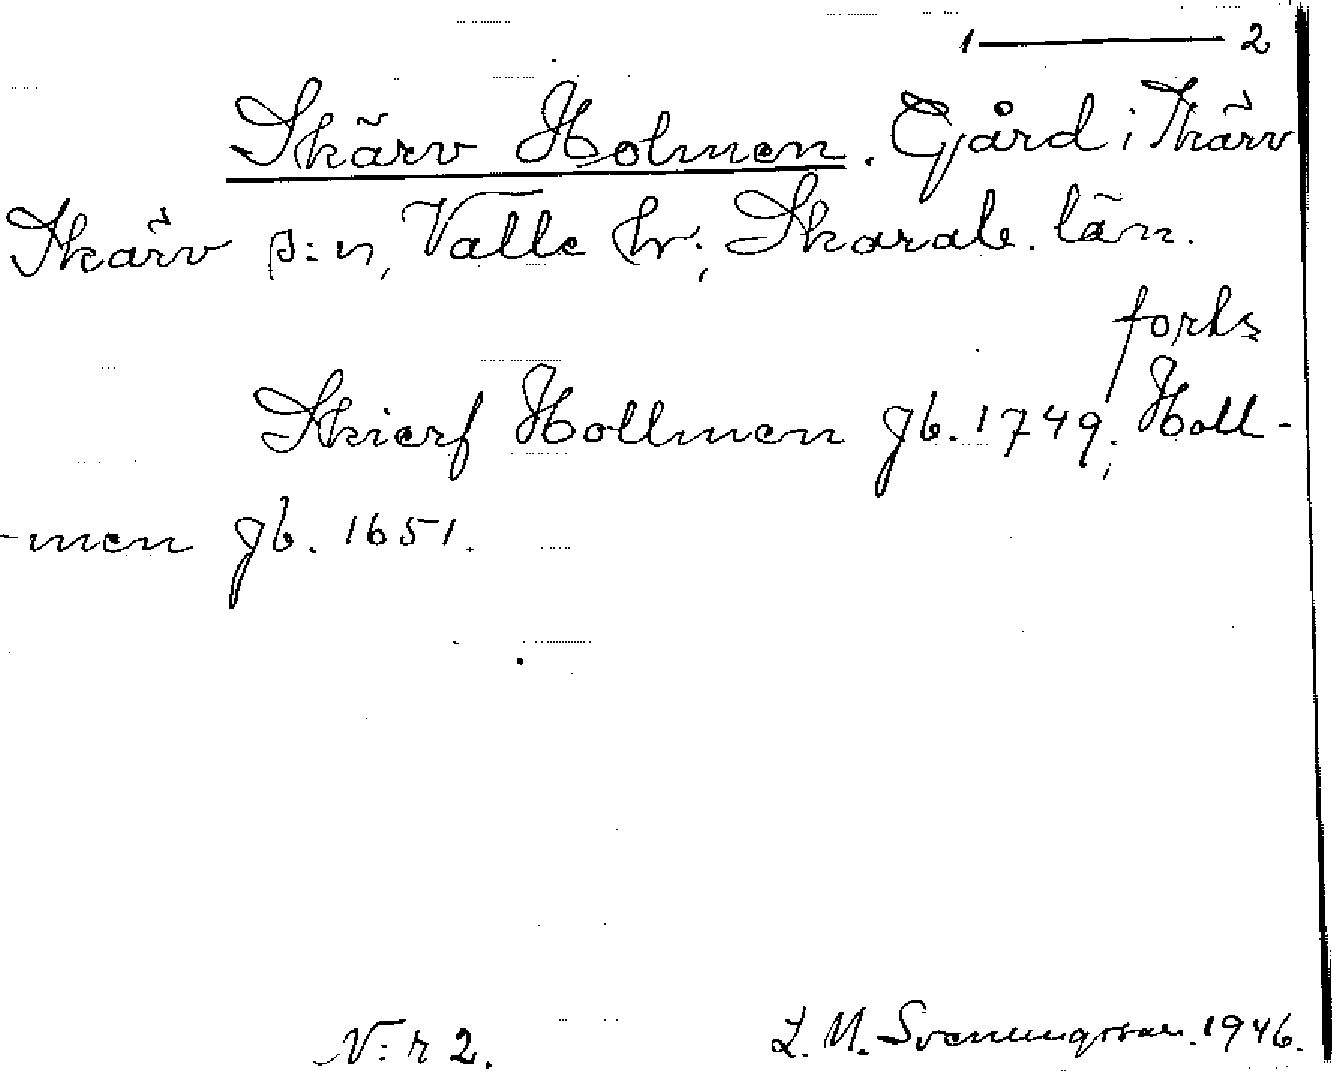 1 — 2
Skärv Holmen. Gård i Skärv
Skärv s:n, Valle hr; Skarab. län.
forts
Skierf Hollmen gb. 1749; Holl-
-men gb. 1651.
N:r 2.
L. M. Svenungsson. 1946.